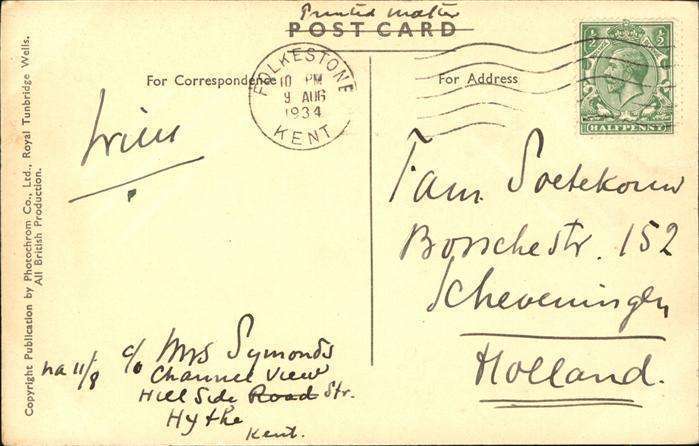 Printed matter
POST CARD
For Correspondence
For Address
FOLKESTONE
10 PM
9 AUG
1934
KENT
HALFPENNY
Fam. Soetekouw
Bosschestr. 152
Scheveningen
Holland.
na 11/8
c/o Mrs Symonds
Channel View
Hill Side Road Str.
Hythe
Kent.
Copyright Publication by Photochrom Co., Ltd., Royal Tunbridge Wells.
All British Production.